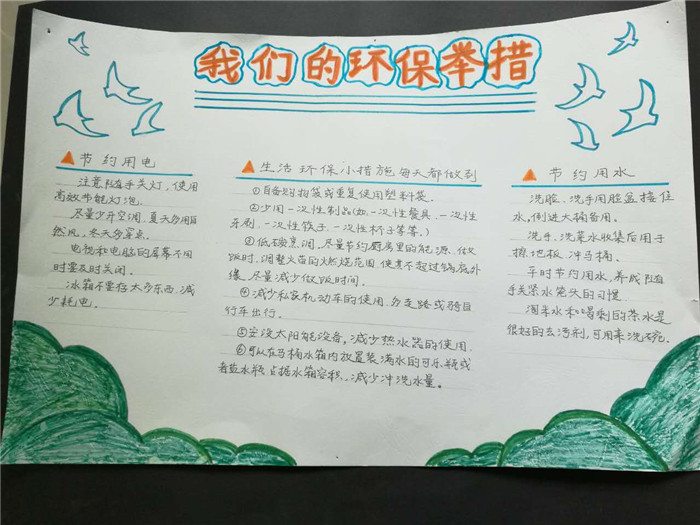 我们的环保举措
节约用电
注意随手关灯，使用
高效节能灯泡.
尽量少开空调，夏天多用自
然风，冬天多穿点.
电视和电脑的屏幕不用
时要及时关闭。
冰箱不要存太多东西，减
少耗电。
生活环保小措施每天都做到
①自备购物袋或重复使用塑料袋。
②少用一次性制品(如一次性餐具、一次性
牙刷、一次性筷子、一次性杯子等等。)
③低碳烹调，尽量节约厨房里的能源、做
饭时，调整火苗的燃烧范围，使其不超过锅底外
缘，尽量减少做饭时间。
④减少私家机动车的使用、多走路或骑自
行车出行。
⑤安设太阳能设备，减少热水器的使用.
⑥可以在马桶水箱内放置装满水的可乐瓶或
者盐水瓶占据水箱容积.，减少冲洗水量。
节约用水
洗脸、洗手用脸盆接住
水，倒进大桶备用。
洗手、洗菜水收集后用于
擦地板、冲马桶。
平时节约用水，养成随
手关紧水笼头的习惯
淘米水和喝剩的茶水是
很好的去污剂，可用来洗碗.